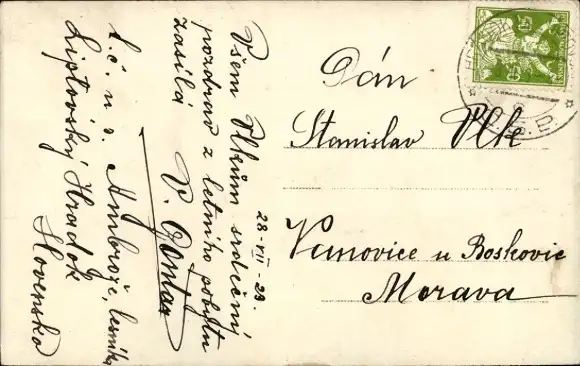 Všem Vlkům srdečný
pozdrav z letního pobytu
zasílá
28-VII-23.
L.č. u p. Ambrože,
Liptovský Hradok
Slovensko
Pán
Stanislav Vlk
Vanovice u Boskovic
Morava